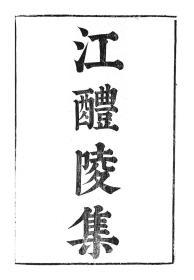 江醴陵集